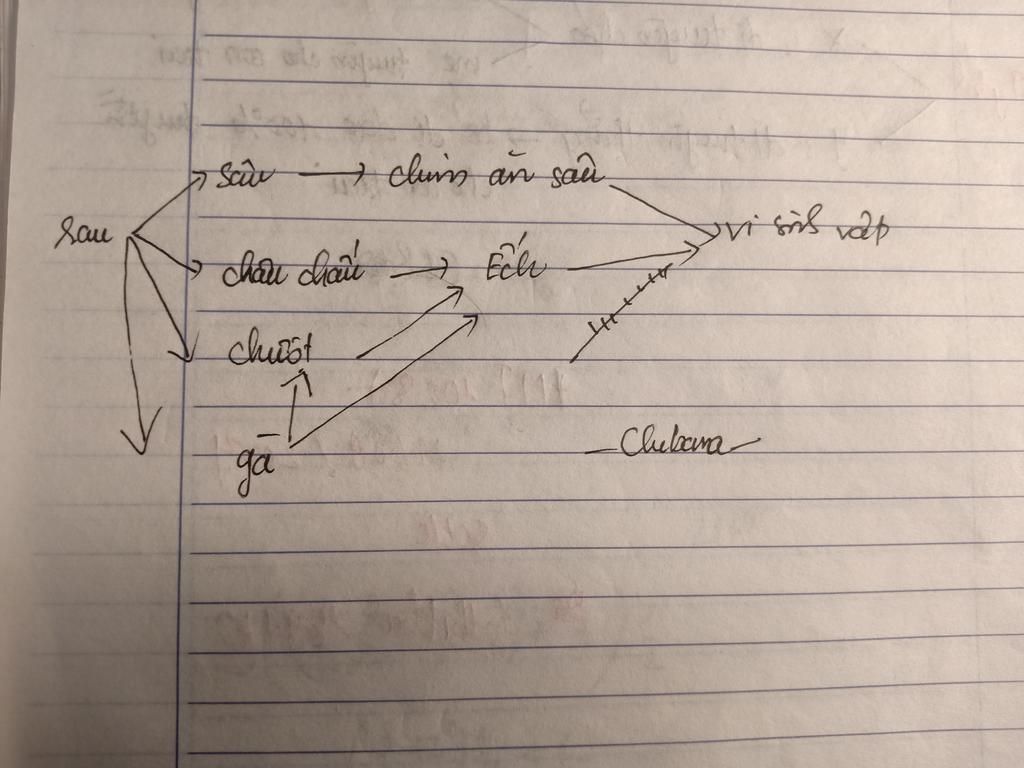 sâu → chim ăn sâu
rau vi sinh vật
châu chấu → Ếch
chuột
gà
Chubana